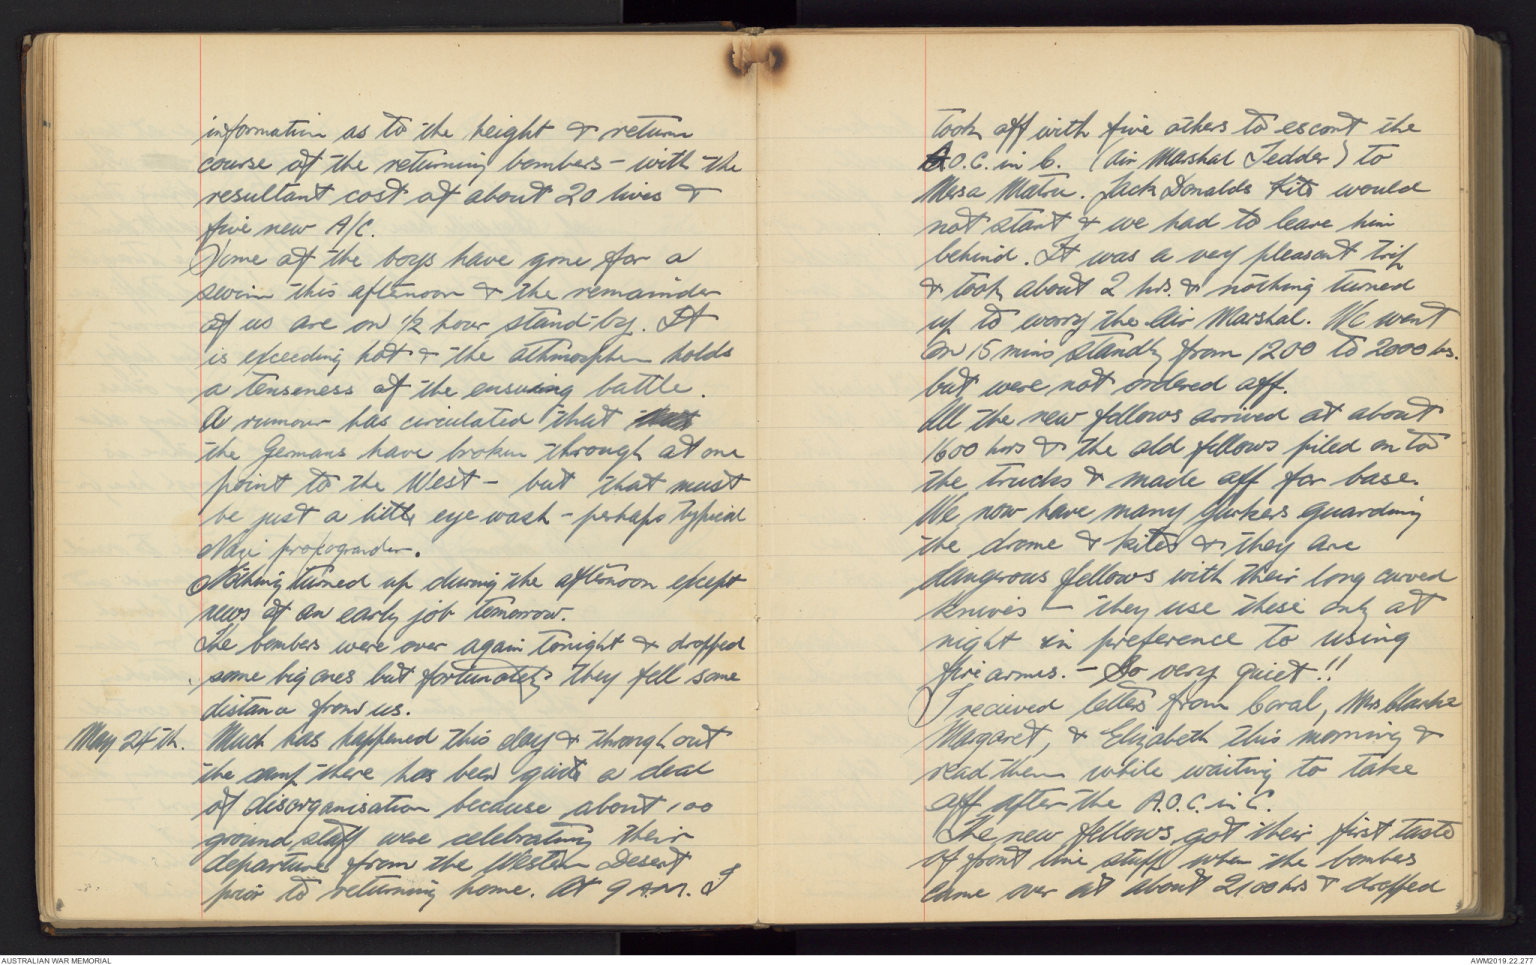 information as to the height & return
course of the returning bombers – with the
resultant cost of about 20 lives &
five new A/C.
Some of the boys have gone for a
swim this afternoon & the remainder
of us are on 1/2 hour stand-by. It
is exceeding hot & the athmosphere holds
a tenseness of the ensuing battle.
A rumour has circulated that
the Germans have broken through at one
point to the West – but that must
be just a little eye wash – perhaps typical
Nazi propogander.
Nothing turned up during the afternoon except
news of an early job tomorrow.
The bombers were over again tonight & dropped
some big ones but fortunately they fell some
distance from us.
May 24th. Much has happened this day & throughout
the camp there has been quite a deal
of disorganisation because about 100
ground staff were celebrating their
departure from the Western Desert
prior to returning home. At 9 A.M. I
took off with five others to escort the
A.O.C. in C. (Air Marshal Tedder) to
Mersa Matru. Jack Donalds kite would
not start & we had to leave him
behind. It was a very pleasant trip
& took about 2 hrs. & nothing turned
up to worry the Air Marshal. We went
on 15 mins standby from 1200 to 2000 hrs.
but were not ordered off.
All the new fellows arrived at about
1600 hrs & the old fellows piled on to
the trucks & made off for base.
We now have many Gurkers guarding
the drome & kites & they are
dangerous fellows with their long curved
knives – they use these only at
night in preference to using
fire arms. – So very quiet!!
I recieved letters from Coral, Mrs Clarke
Margaret, & Elizabeth this morning &
read them while waiting to take
off after the A.O.C. in C.
The new fellows got their first taste
of front line stuff when the bombers
came over at about 2100 hrs & dropped
AUSTRALIAN WAR MEMORIAL
AWM2019.22.277